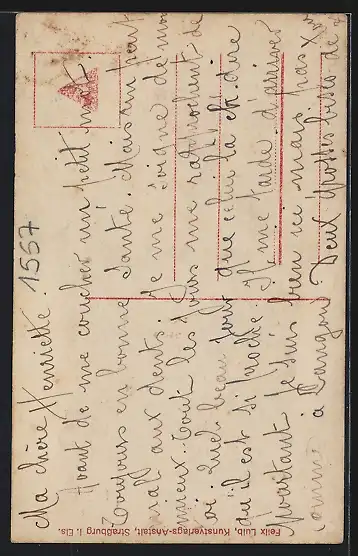 Ma chère Henriette.
Avant de me coucher un petit mot.
Toujours en bonne santé. Mais un peu
mal aux dents. Je me soigne de mon
mieux. Tout les jours me rapprochent de
toi. Quel beau jour que celui la et dire
qu'il est si proche. Il me tarde d'arriver
Pourtant je suis bien ici mais pas
comme à Langon Deux grosses bises de
1557
Felix Luib, Kunstverlags-Anstalt, Straßburg i. Els.